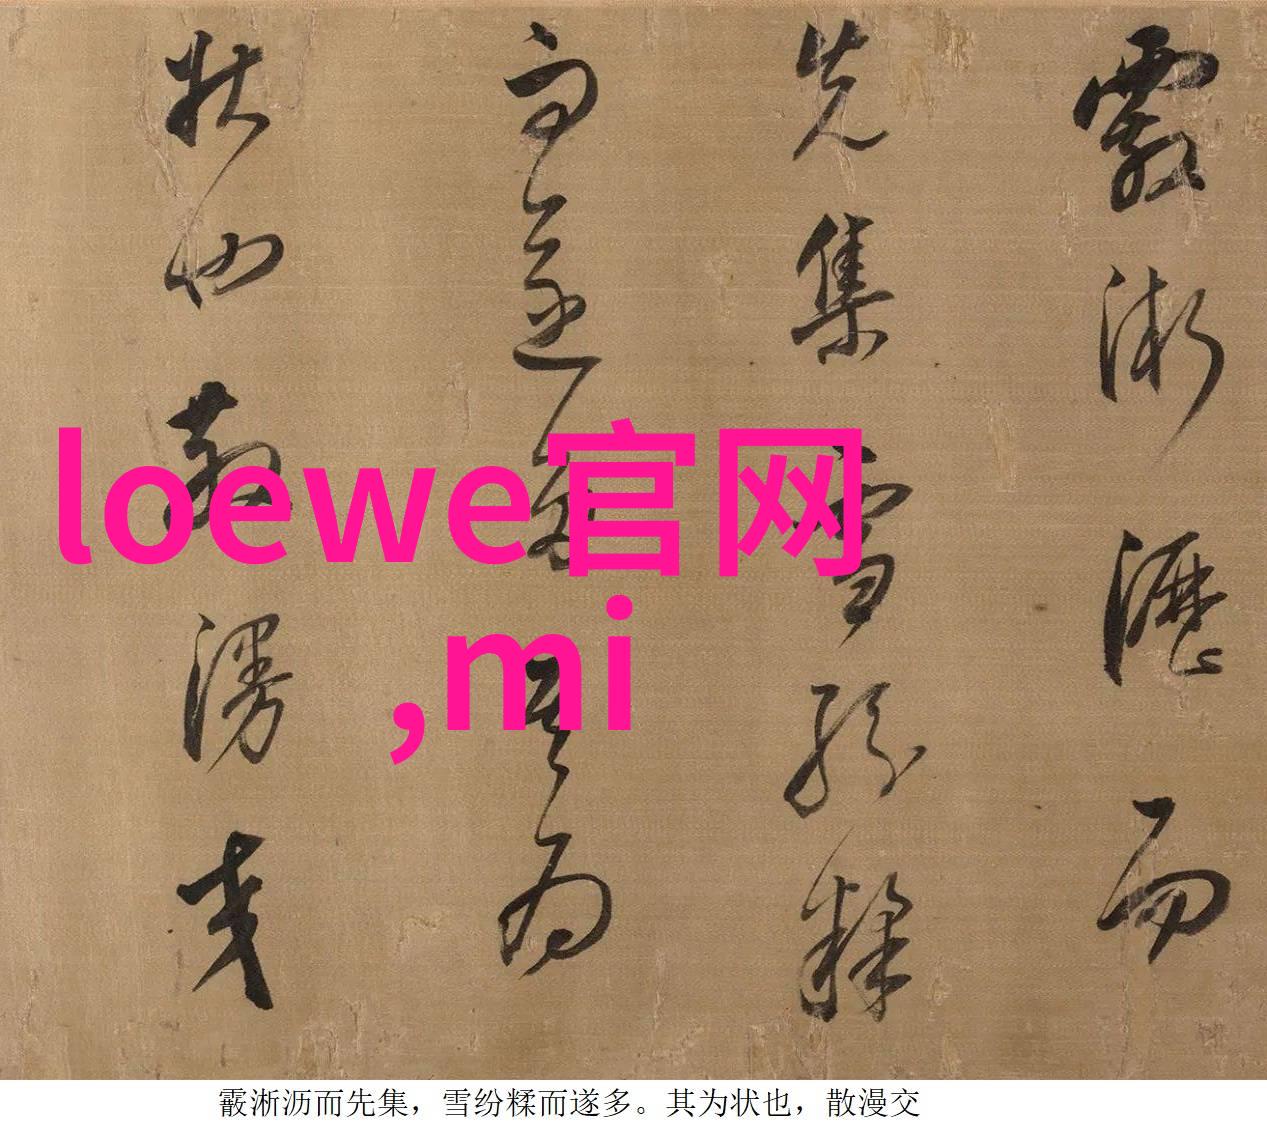 霰淅瀝而
先集雪紛糅
而遂多其為
狀也散漫交
loewe官网
,mi
霰淅沥而先集，雪纷糅而遂多。其为状也，散漫交